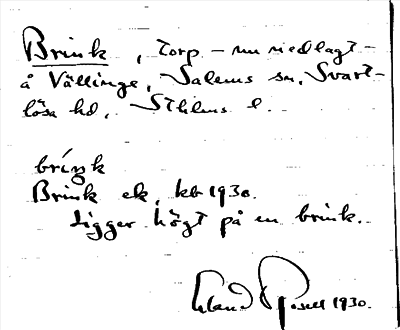 Brink, torp – nu nedlagt –
å Vällinge, Salems sn, Svart-
lösa hd, Sthlms l.
bríŋk
Brink ek. kb 1930.
Ligger högt på en brink.
Erland Rosell 1930.